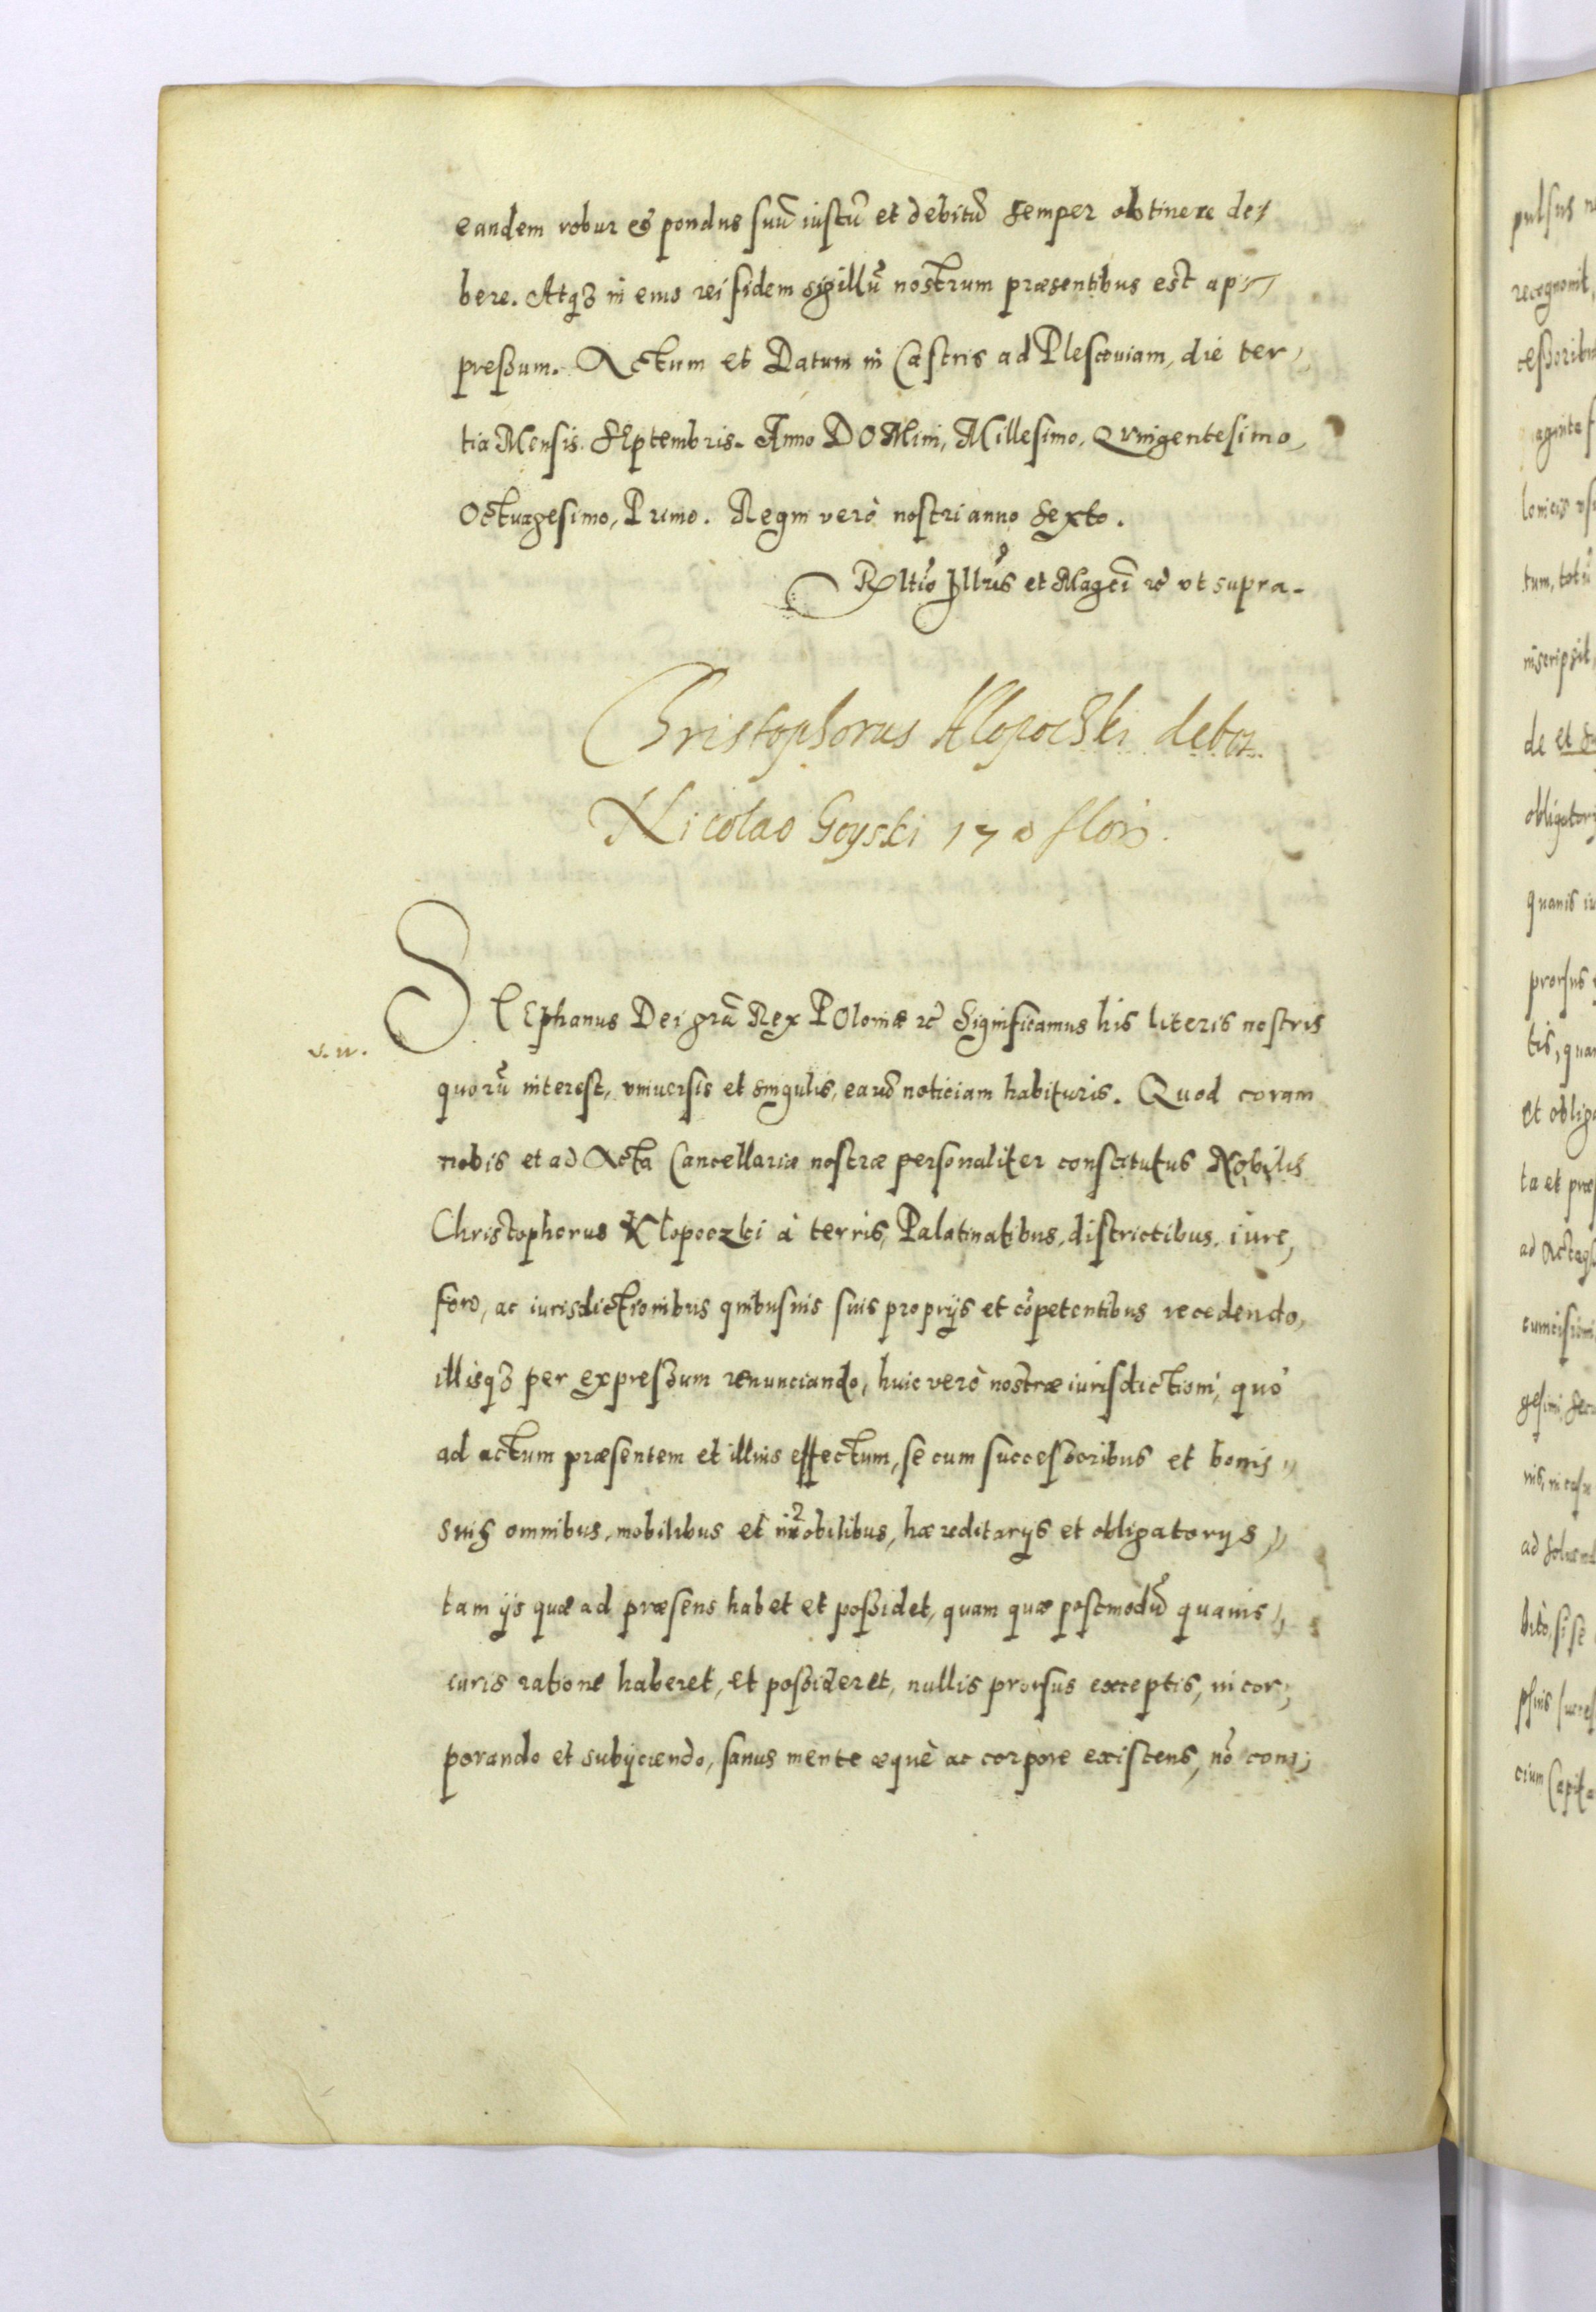 eandem robur et pondus suũ iustũ et debitũ semper obtinere de⸗
bere. Atq₃ in eius rei fidem sigillũ nostrum præsentibus est ap⸗
preßum. Actum et Datum in Castris ad Plescouiam, die ter⸗
tia Mensis. SEptembris. Anno DOMini, Millesimo, Quingentesimo,
Octuagesimo, Primo. Regni verò nostri anno Sexto.
Rltio Illris et Magci rc̃ vt supra.
Christophorus Klopocski debet
Nicolao Goyski 170 flor.
STEphanus Dei gra᷈ Rex POloniæ rc̃ Significamus his literis nostris
quorũ interest, vniuersis et singulis, earũ noticiam habituris. Quod coram
nobis et ad Acta Cancellariæ nostræ personaliter constitutus Nobilis
Christophorus Klopoczki à terris, Palatinatibus, districtibus, iure,
foro, ac iurisdictionibus quibusuis suis proprijs et cõpetentibus recedendo,
illisq₃ per expreßum renunciando, huic verò nostræ iurisdictioni, quò
ad actum præsentem et illius effectum, se cum succeßoribus et bonis
suis omnibus, mobilibus et imobilibus, hæreditarijs et obligatorijs,
tam ijs quæ ad præsens habet et poßidet, quam quæ postmodũ quauis
iuris ratione haberet, et poßideret, nullis prorsus exceptis, incor⸗
porando et subijciendo, sanus mente æquè ac corpore existens, nõ com⸗